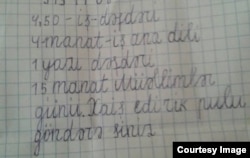 4,50 - iş-dəfdəri
4 manat-iş ana dili
1 yazı dəfdəri
15 manat Müəllimlər
günü. Xaiş edirik pulu
göndərə siniz
Courtesy Image